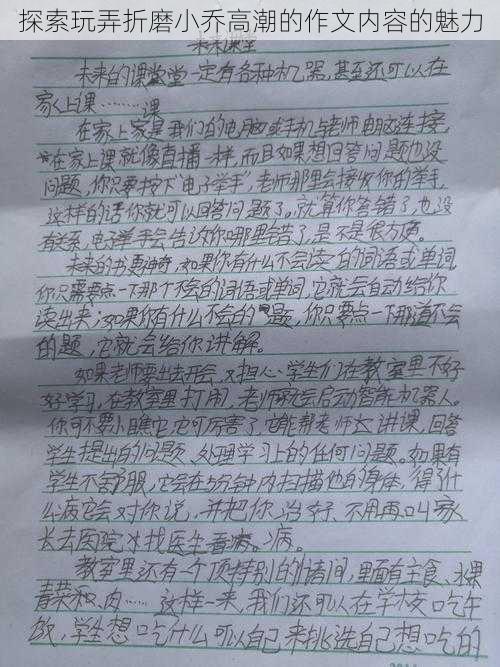 探索玩弄折磨小乔高潮的作文内容的魅力
未来课堂
未来的课堂堂一定有各种机器,甚至还可以在
家上课………
课
在家上家是我们的电脑或手机与老师电脑连接,
在家上课就像直播一样,而且如果想回答问题也没
问题,你只要按下“电子举手”,老师那里会接收你的举手,
这样的话你就可以回答问题了。就算你答错了,也没
有关系,电子举手会告诉你哪里错了,是不是很方便。
未来的书更神奇,如果你有什么不会读的词语或单词,
你只需要点一下那个不会的词语或单词,它就会自动给你
读出来;如果你有什么不会的题,你只要点一下那道不会
的题,它就会给你讲解。
如果老师要出去开会,又担心学生们在教室里不好
好学习,在教室里打闹,老师就会启动管家机器人。
你可不要小瞧它,它可厉害了,它能帮老师上讲课,回答
学生提出的问题、处理学习上的任何问题。如果有
学生不舒服,它会在5分钟内扫描他的身体,得什
么病它会对你说,并把你治好,不用再叫家
长去医院找医生看病。病。
教室里还有一个顶特别的房间,里面有主食、水果
青菜和肉……这样一来,我们还可以在学校吃午
饭,学生想吃什么可以自己来挑选自己想吃的